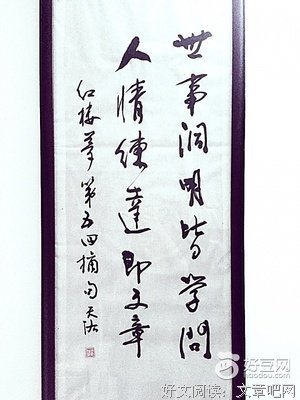 世事洞明皆学問
人情练達即文章
红楼夢第五回摘句天
好豆网
haodou.com
好文阅读：文章吧网